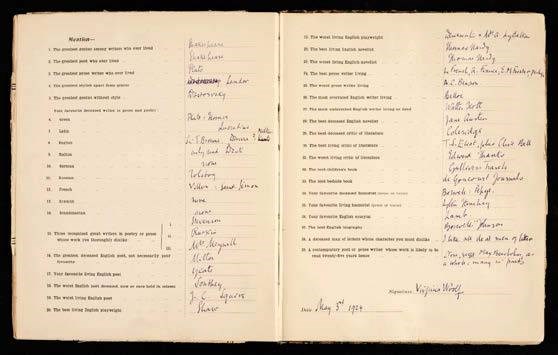 Mention—
1. The greatest genius among writers who ever lived Shakespeare
2. The greatest poet who ever lived Shakespeare
3. The greatest prose writer who ever lived Plato
4. The greatest stylist apart from genius Landor
5. The greatest genius without style Dostoevsky
Your favourite deceased writer in prose and poetry:
6. Greek Plato: Homer
7. Latin Lucretius
8. English Sir T Browne. Donne
9. Italian only read Dante
10. German none
11. Russian Tolstoy
12. French Villon: Saint Simon
13. Spanish none
14. Scandinavian none
15. Three recognised great writers in poetry or prose whose work you thoroughly dislike
i. Swinburne
ii. Ruskin
iii. Mrs. Meynell
16. The greatest deceased English poet, not necessarily your favourite Milton
17. Your favourite living English poet Yeats
18. The worst English poet deceased, now or once held in esteem Southey
19. The worst living English poet J. C. Squire
20. The best living English playwright Shaw
The worst living English playwright
The best living English novelist Thomas Hardy
The worst living English novelist
The best living prose writer
The worst prose writer living A.C. Benson
The most overrated English writer living Belloc
The most underrated English writer living or dead
The best deceased English novelist Jane Austen
The best deceased critic of literature Coleridge
The best living critic of literature T. S. Eliot
The worst living critic of literature
The best childrens book Gullivers Travels
The best bedside book de Goncourt Journals
Your favourite deceased humorist
Your favourite living humorist
Your favourite English essayist Lamb
The best English biography Boswell's Johnson
A deceased man of letters whose character you most dislike I like all dead men of letters
A contemporary poet or prose writer whose work is likely to be read twenty-five years hence
Signature Virginia Woolf
Date May 3rd 1924